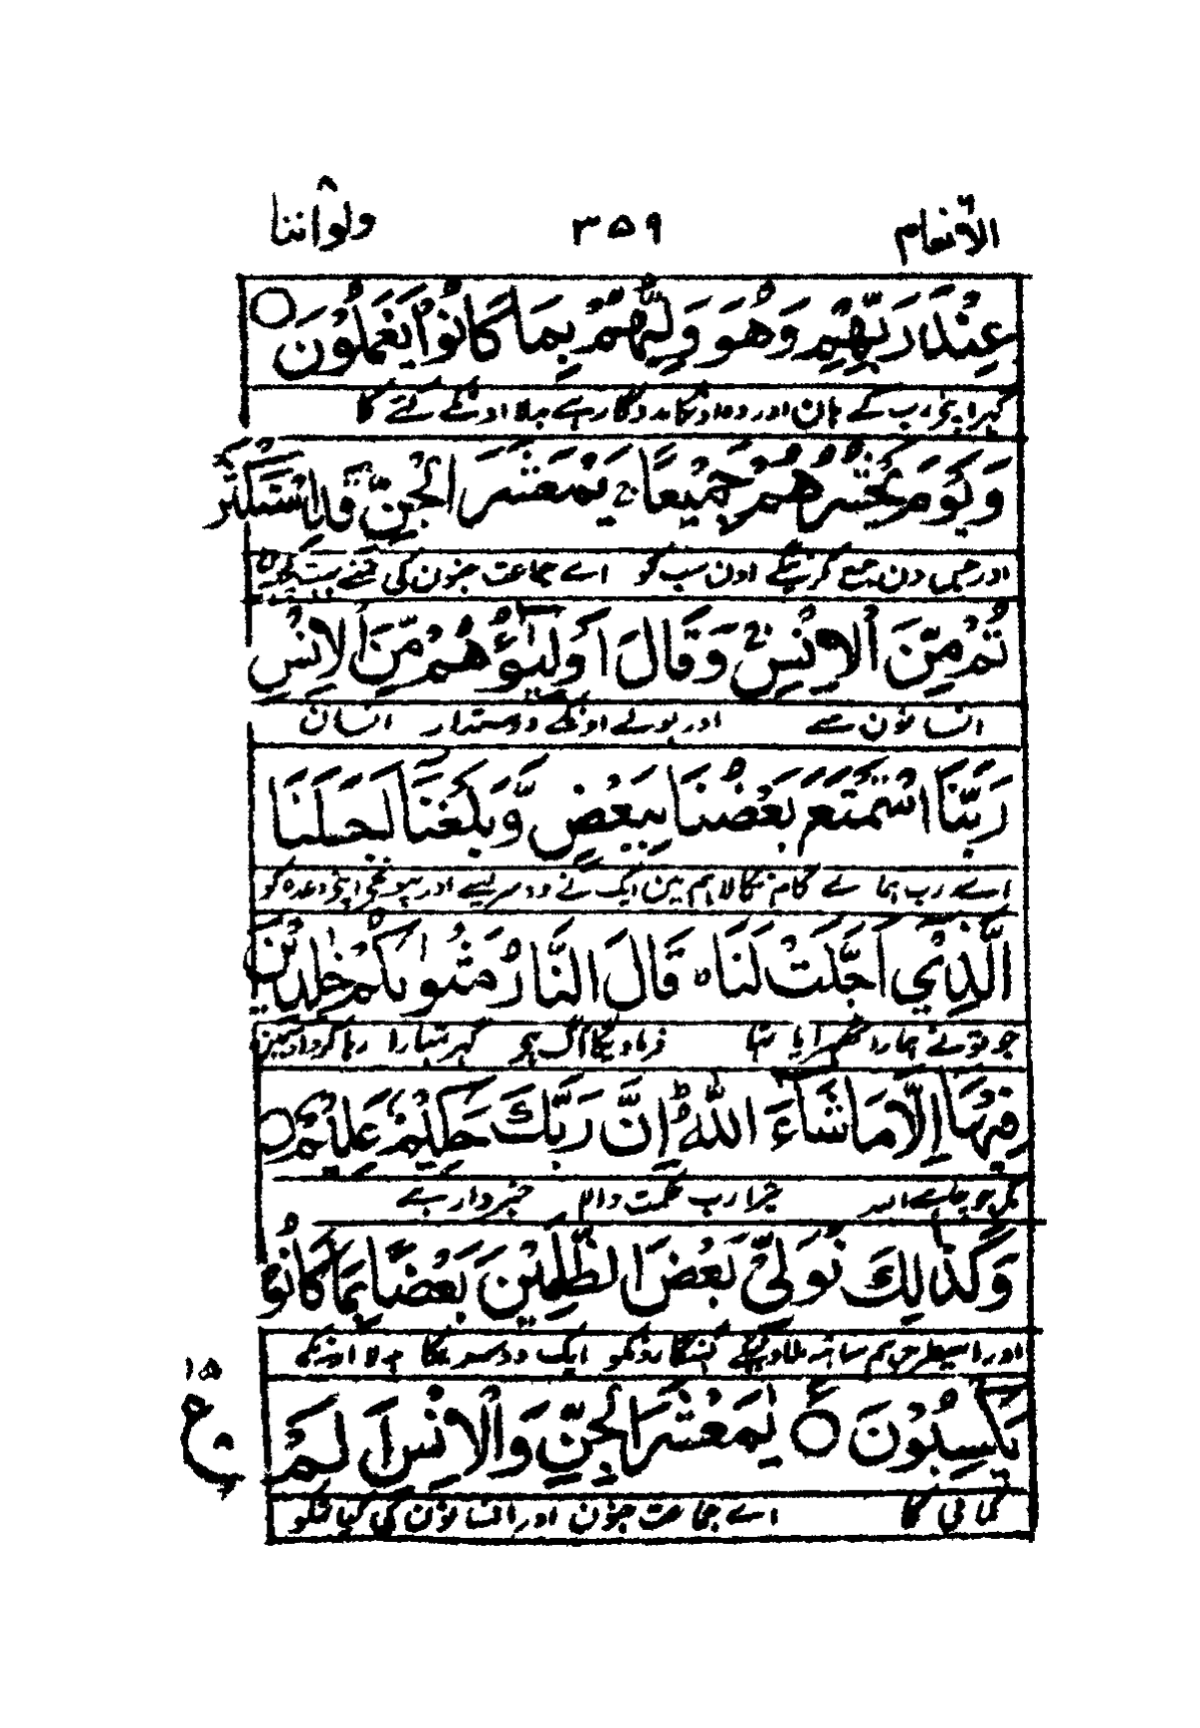 الانعام ٦ ٣٥٩ ولواننا ٨
عِنْدَ رَبِّهِمْ وَهُوَ وَلِيُّهُمْ بِمَا كَانُوْا يَعْمَلُوْنَ ○
گہر اپنی رب کے ہان اور وہ اونکا مددگار ہے بدلا اونکے کئے کا
وَيَوْمَ يَحْشُرُهُمْ جَمِيْعًا ج يٰمَعْشَرَ الْجِنِّ قَدِ اسْتَكْثَرْ
اور جس دن جمع کریگے اون سب کو اے جماعت جنون کی تمنے بہت کچہہ
تُمْ مِّنَ الْاِنْسِ ج وَقَالَ اَوْلِيٰٓؤُهُمْ مِّنَ الْاِنْسِ
انسانون سے اور بولے اونکے دوستدار انسان
رَبَّنَا اسْتَمْتَعَ بَعْضُنَا بِبَعْضٍ وَّبَلَغْنَآ اَجَلَنَا
اے رب ہمارے کام نکالا ہم مین ایک نے دوسریسے اور پہونچی اپنی وعدہ کو
الَّذِيْٓ اَجَّلْتَ لَنَا ه قَالَ النَّارُ مَثْوٰىكُمْ خٰلِدِيْنَ
جو تونے ہمارا ٹھہرایا تہا فرماویگا آگ ہی گہر تمہارا رہا کرو اوسمین
فِيْهَآ اِلَّا مَا شَآءَ اللّٰهُ ط اِنَّ رَبَّكَ حَكِيْمٌ عَلِيْمٌ ○
مگر جو چاہے اللہ تیرا رب حکمت والا خبردار ہے
وَكَذٰلِكَ نُوَلِّيْ بَعْضَ الظّٰلِمِيْنَ بَعْضًا بِمَا كَانُوْا
اور اسیطرح ہم ساتہہ ملادینگے گنہگارونکو ایک دوسریکا بدلا اونکی
يَكْسِبُوْنَ ○ ع يٰمَعْشَرَ الْجِنِّ وَالْاِنْسِ اَلَمْ
کمائی کا اے جماعت جنون اور انسانون کی کیا تمکو
١٥
ع
٨
٢